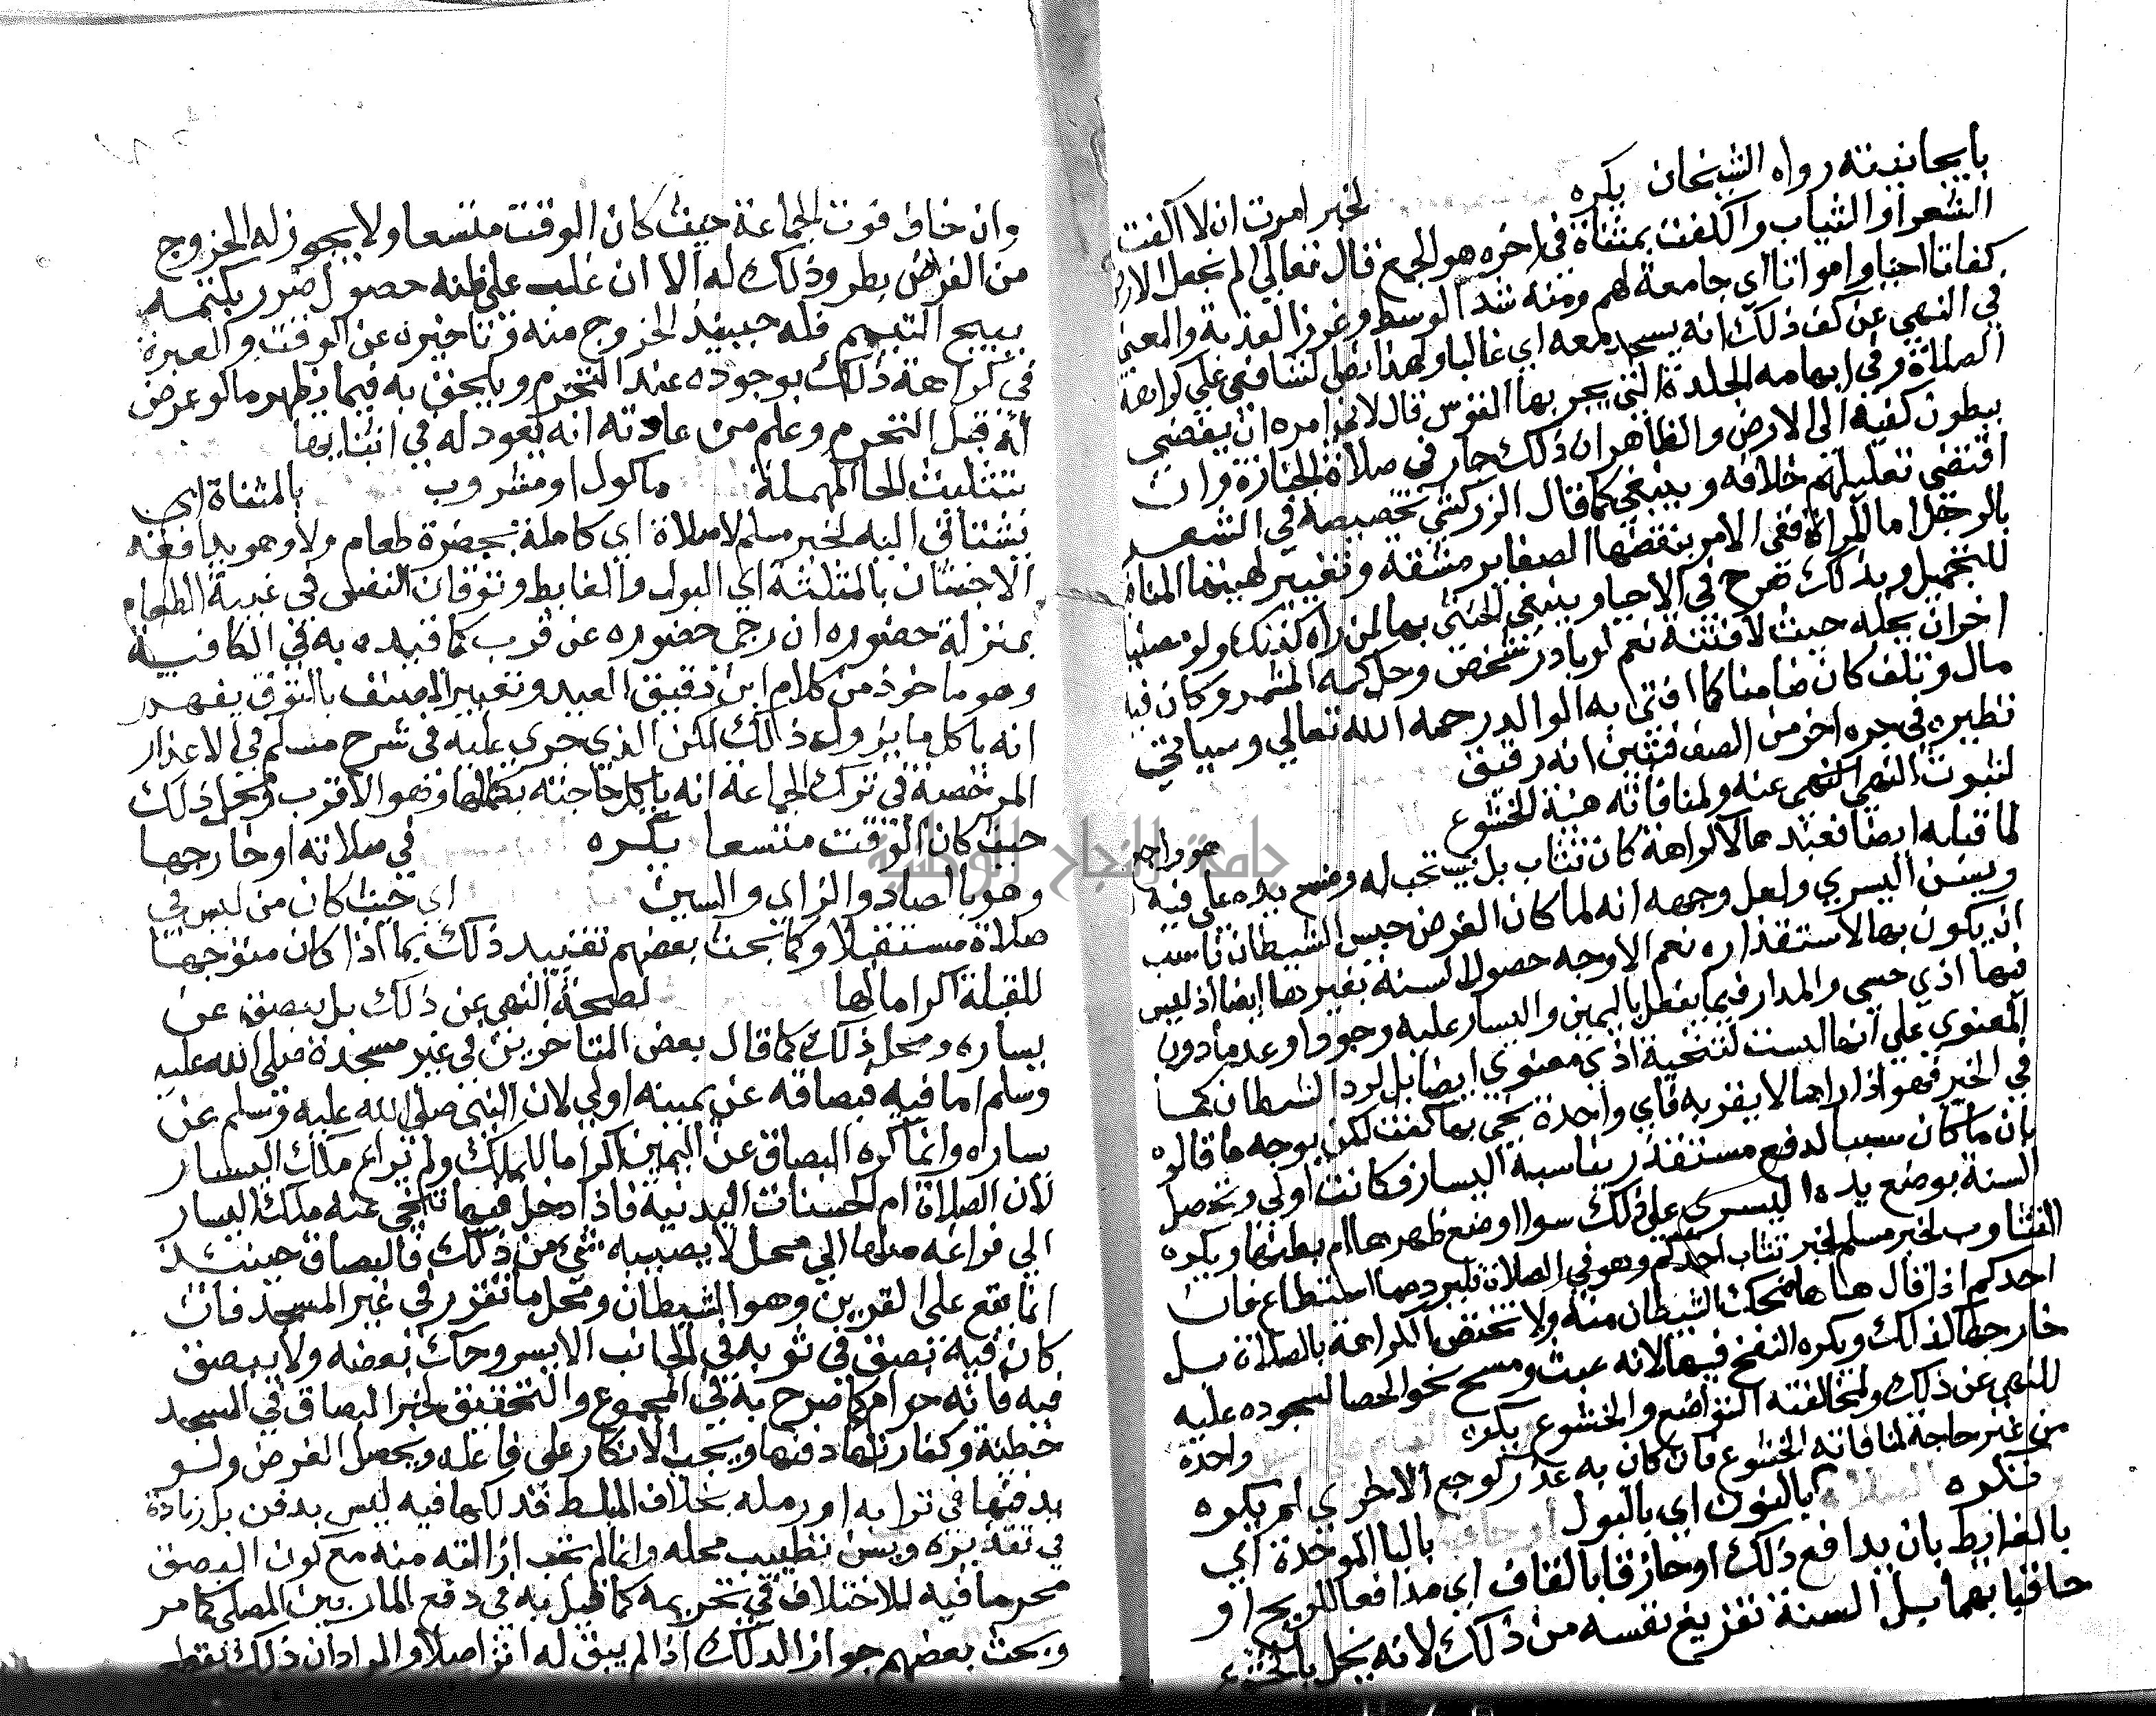 بايجانيته رواه الشيخان يكره
لخبر امرت ان لا اكفت
الشعر او الثياب والكفت بمثناة في اخره هو الجمع قال تعالى الم نجعل الارض
كفاتا احيا وامواتا اي جامعة لهم ومنه شد الوسط وغرز العذبة والمعنى
في النهي عن كف ذلك انه يسجد معه اي غالبا ولهذا نص الشافعي على كراهة
الصلاة وفي ابهامه الجلدة التي يجر بها القوس قال لاني امره ان يفضي
ببطون كفيه الى الارض والظاهر ان ذلك جار في صلاة الجنازة وان
اقتضى تعليلهم خلافه وينبغي كما قال الزركشي تخصيصه في الشعر
بالرجل اما المراة ففي الامر بنقضها الضفاير مشقة وتغيير لهيئتها المنافية
للتجميل وبذلك صرح في الاحيا وينبغي الحنثى بها لمن راه كذلك ولو مصليا
اخر ان يحله حيث لا فتنة نعم لو بادر شخص وحل كمه المشمر وكان فيه
مال وتلف كان ضامنا كما افتى به الوالد رحمه الله تعالى وسياتي
نظيره في جره اخر من الصف فتبين انه رقيق
لثبوت النهي النهي عنه ولمنافاته هيئة للخشوع
لما قبله ايضا فعند هما لا كراهة كان تثاب بل يستحب له وضع يده على فيه
هو واجم
ويسن اليسرى ولعل وجهه انه لما كان الغرض حبس الشيطان ناسب
ان يكون بها لاستقذاره نعم الاوجه حصول السنة بغيرها ايضا اذ ليس
فيها اذي حسي والمدار فيما يفعل باليمين واليسار عليه وجودا وعدما دون
المعنوي على انها ليست لتنحية اذي معنوي ايضا بل لرد الشيطان كما
في الخبر فهو اذا راها لا يقربه فاي واحدة نحي بها كفت لكن يوجه ما قالوه
بان ما كان سببا لدفع مستقذر يناسبه اليسار فكانت اولى وتحصل
السنة بوضع يده اليسرى على ذلك سوا وضع ظهرها ام بطنها ويكره
التثاوب لخبر مسلم لخبر تثاب احدكم وهو في الصلاة فليرده ما استطاع فان
احدكم اذا قال ها ها ضحك الشيطان منه ولا تختص الكراهة بالصلاة بل
خارجها كذلك ويكره النفخ فيها لانه عبث ومسح نحو الحصا لسجوده عليه
للنهي عن ذلك ولمخالفته التواضع والخشوع يكره
واحدة
من غير حاجة لمنافاته الخشوع فان كان به عذر كوجع الاخرى لم يكره
تكره
بالنون اي بالبول
بالبا الموحدة اي
بالغايط بان يدافع ذلك او حازقا بالقاف اي مدافعا للريح او
حاقبا بهما بل السنة تفريغ نفسه من ذلك لانه يخل بالخشوع
وان خاف فوت الجماعة حيث كان الوقت متسعا ولا يجوز له الخروج
من الفرض بطرو ذلك له الا ان غلب على ظنه حصول ضرر بكتمه
يبيح التيمم فله حينئذ الخروج منه وتاخيره عن الوقت والعبرة
في كراهة ذلك بوجوده عند التحرم ويلحق به فيما يظهر ما لو عرض
له قبل التحرم وعلم من عادته انه يعود له في اثنايها
بتثليث الحا المهملة ماكول او مشروب بالمثناة اي
يشتاق اليه لخبر مسلم لا صلاة اي كاملة بحضرة طعام ولا وهو يدافعه
الاخبثان بالمثلثة اي البول والغايط وتوقان النفس في غيبة الطعام
بمنزلة حضوره ان رجى حضوره عن قرب كما قيده به في الكافية
وهو ماخوذ من كلام ابن دقيق العيد وتعبير المصنف بالتوق يفهم
انه ياكل ما يزول ذلك لكن الذي جرى عليه في شرح مسلم في الاعذار
المرخصة في ترك الجماعة انه ياكل حاجته بكمالها وهو الاقرب ومحل ذلك
حيث كان الوقت متسعا يكره في صلاته او خارجها
وهو بالصاد والزاي والسين اي حيث كان من ليس في
صلاة مستقبلا وكما بحث بعضهم تقييد ذلك بما اذا كان متوجها
للقبلة اكراما لها لصحة النهي عن ذلك بل يبصق عن
يساره ومحل ذلك كما قال بعض المتاخرين في غير مسجده صلى الله عليه
وسلم اما فيه فبصاقه عن يمينه اولى لان النبي صلى الله عليه وسلم عن
يساره وانما كره البصاق عن اليمين اكراما للملك ولم يراع ملك اليسار
لان الصلاة ام الحسنات البدنية فاذا دخل فيها تنحى عنه ملك اليسار
الى فراغه منها الى محل لا يصيبه شي من ذلك فالبصاق حينئذ
انما يقع على القرين وهو الشيطان ومحل ما تقرر في غير المسجد فان
كان فيه بصق في ثوبه في الجانب الايسر وحك بعضه ولا يبصق
فيه فانه حرام كما صرح به في المجموع والتحقيق لخبر البصاق في المسجد
خطية وكفارتها دفنها ويجب الانكار على فاعله ويحصل الغرض ولو
بدفنها في ترابه او رمله بخلاف المبلط فدلكها فيه ليس بدفن بل زيادة
في تقذيره ويسن تطييب محله وانما لم تجب ازالته منه مع كون البصق
محرما فيه للاختلاف في تحريمه كما قيل به في دفع المار بين المصلى كما مر
وبحث بعضهم جواز الدلك اذا لم يبق له اثر اصلا والمراد ان ذلك يقطع
جامعة النجاح الوطنية